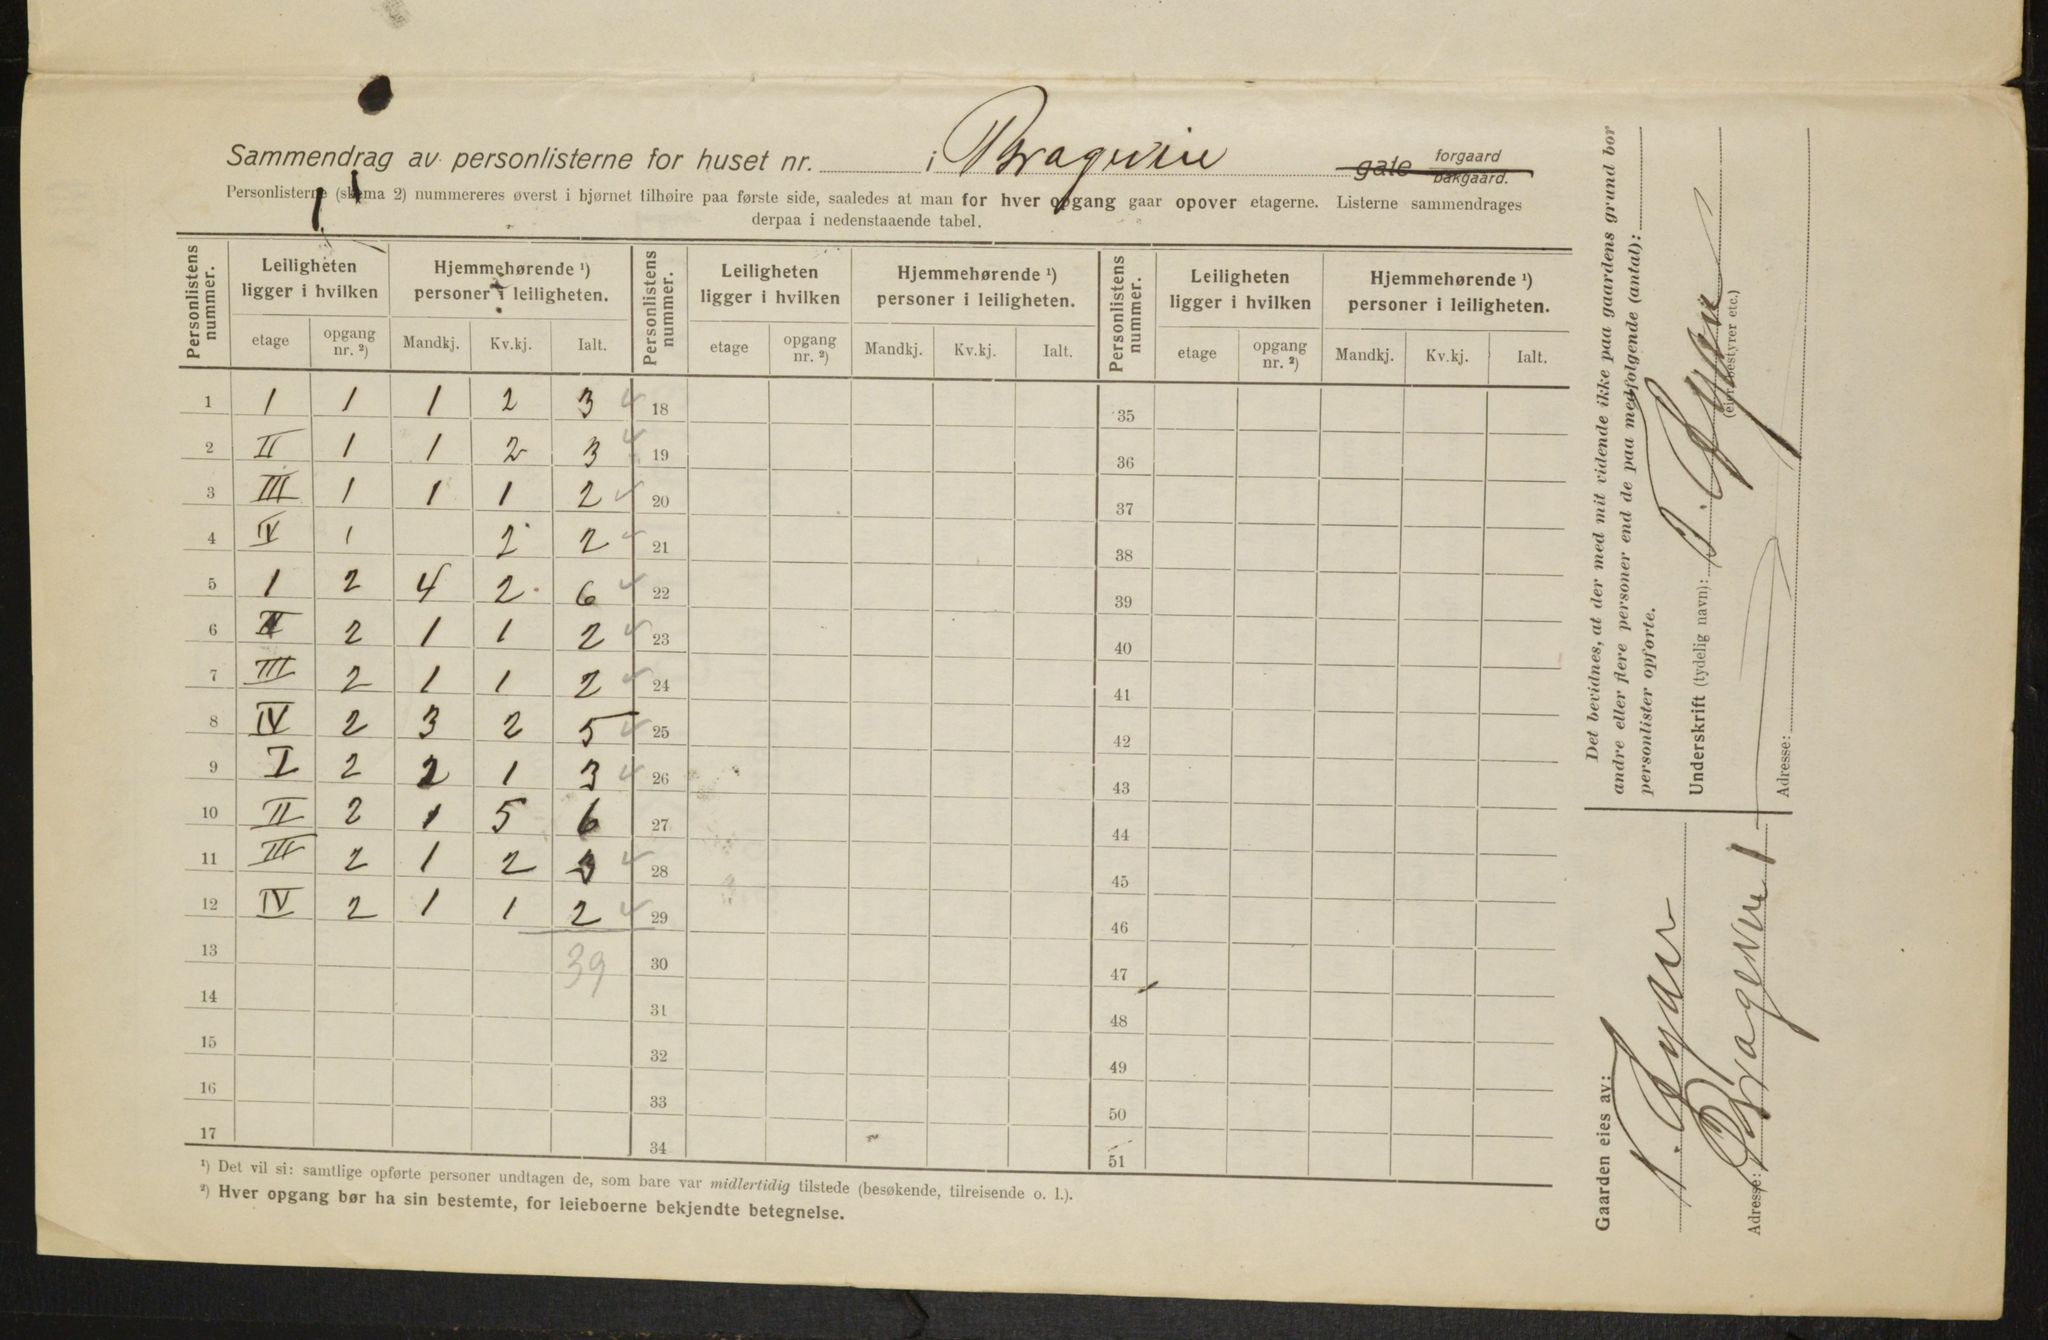 Sammendrag av personlisterne for huset nr. i Bragevn gate forgaard bakgaard.
Personlisterne (skema 2) nummereres øverst i hjørnet tilhøire paa første side, saaledes at man for hver opgang gaar opover etagerne. Listerne sammendrages
derpaa i nedenstaaende tabel.
Personlistens nummer. Leiligheten ligger i hvilken Hjemmehørende ¹) personer i leiligheten. Personlistens nummer. Leiligheten ligger i hvilken Hjemmehørende ¹) personer i leiligheten. Personlistens nummer. Leiligheten ligger i hvilken Hjemmehørende ¹) personer i leiligheten.
etage opgang nr. ²) Mandkj. Kv.kj. Ialt. etage opgang nr. ²) Mandkj. Kv.kj. Ialt. etage opgang nr. ²) Mandkj. Kv.kj. Ialt.
1 1 1 1 2 3 18 35
2 II 1 1 2 3 19 36
3 III 1 1 1 2 20 37
4 IV 1 2 2 21 38
5 1 2 4 2 6 22 39
6 II 2 1 1 2 23 40
7 III 2 1 1 2 24 41
8 IV 2 3 2 5 25 42
9 I 2 2 1 3 26 43
10 II 2 1 5 6 27 44
11 III 2 1 2 3 28 45
12 IV 2 1 1 2 29 46
13 39 30 47
14 31 48
15 32 49
16 33 50
17 34 51
¹) Det vil si: samtlige opførte personer undtagen de, som bare var midlertidig tilstede (besøkende, tilreisende o. l.).
²) Hver opgang bør ha sin bestemte, for leieboerne bekjendte betegnelse.
Det bevidnes, at der med mit vidende ikke paa gaardens grund bor
andre eller flere personer end de paa medfølgende (antal):
personlister opførte.
Underskrift (tydelig navn):
(eier, bestyrer etc.)
Adresse:
Gaarden eies av:
Adresse: Bragevn 1